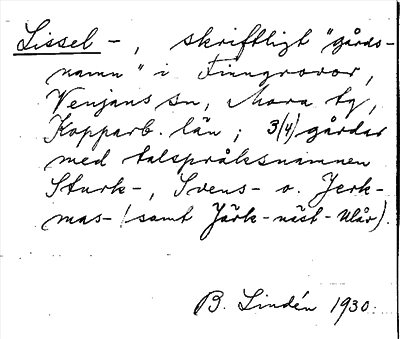 Lissel-, skriftligt "gårds-
namn" i Finngruvor,
Venjans sn, Mora tg,
Kopparb. län; 3(4) gårdar
med talspråksnamnen
Sturk-, Svens- o. Jerk-
mas- (samt Järk-näst-Ulår).
B. Lindén 1930.